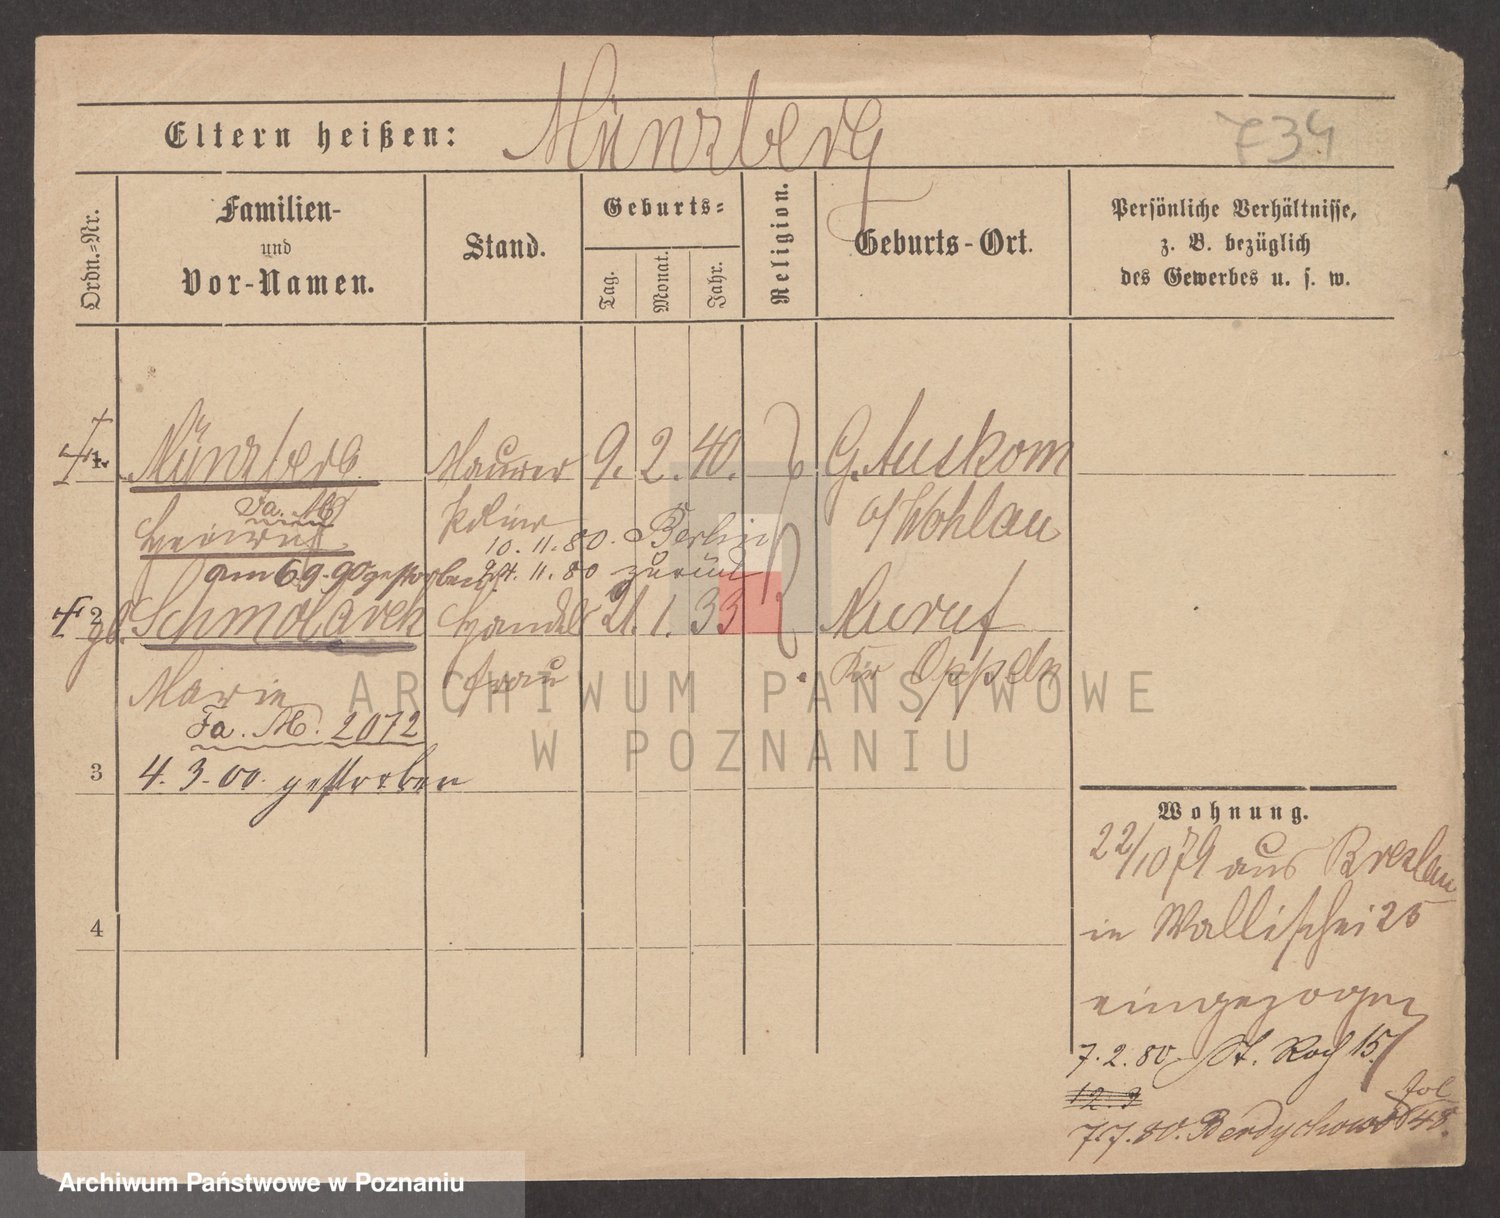 Eltern heißen: Münzberg
734
Ordn.=Nr.
Familien-
und
Vor-Namen.
Stand.
Geburts=
Tag.
Monat.
Jahr.
Religion.
Geburts-Ort.
Persönliche Verhältnisse,
z. B. bezüglich
des Gewerbes u. s. w.
1. Münzberg Maurer 9. 2. 40. G. Auskom
Fa. M o/Wohlau
Heinrich Polier
10. 11. 80. Berlin
am 6 9. 90 gestorben. 11. 80 zurück
2 Schmolarek Handels 21. 1. 33 Murof
Marie frau Kr Oppeln
Fa. M. 2072
3 4. 3. 00. gestorben
4
Wohnung.
22/10 79 aus Breslau
in Wallischei 25
eingezogen
7. 2. 80. St. Roch 15
12. 3
7.7. 80. Berdychowo 48.
fol
ARCHIWUM PAŃSTWOWE
W POZNANIU
Archiwum Państwowe w Poznaniu